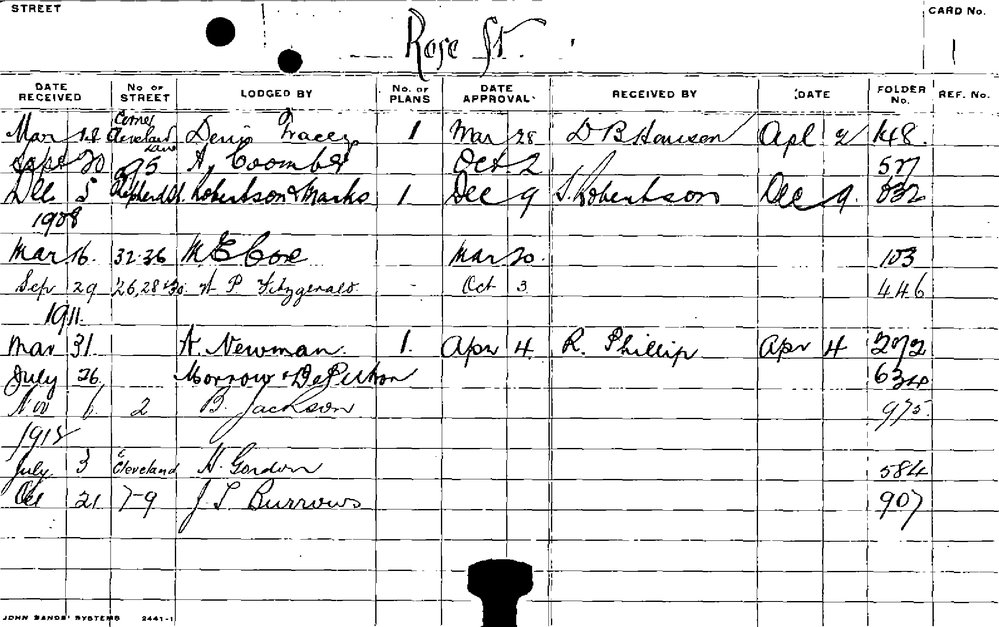 STREET Rose St. CARD No. 1
DATE RECEIVED No. OF STREET LODGED BY No. OF PLANS DATE APPROVAL RECEIVED BY DATE FOLDER No. REF. No.
Mar 18 Corner Cleveland Denis Tracey 1 Mar 28 D B Harrison Apl 2 148.
Sept 20 A. Coombes Oct 2 577
Dec 5 Shepherd St. Robertson & Marks 1 Dec 9 S. Robertson Dec 9. 832
1908
Mar 16. 32-36 M E Coxe Mar 20. 103
Sep 29 26, 28 & 30. P Fitzgerald Oct 3 446
1911.
Mar 31 A. Newman. 1. Apr 4. R. Phillip Apr 4 2072
July 26. Morrow & De Putron 634
Nov 2 B. Jackson 975.
1912
July 3 Cleveland H. Gordon 584
Oct 21 7-9 J S Burrows 907
JOHN SANDS' SYSTEMS 2441-1